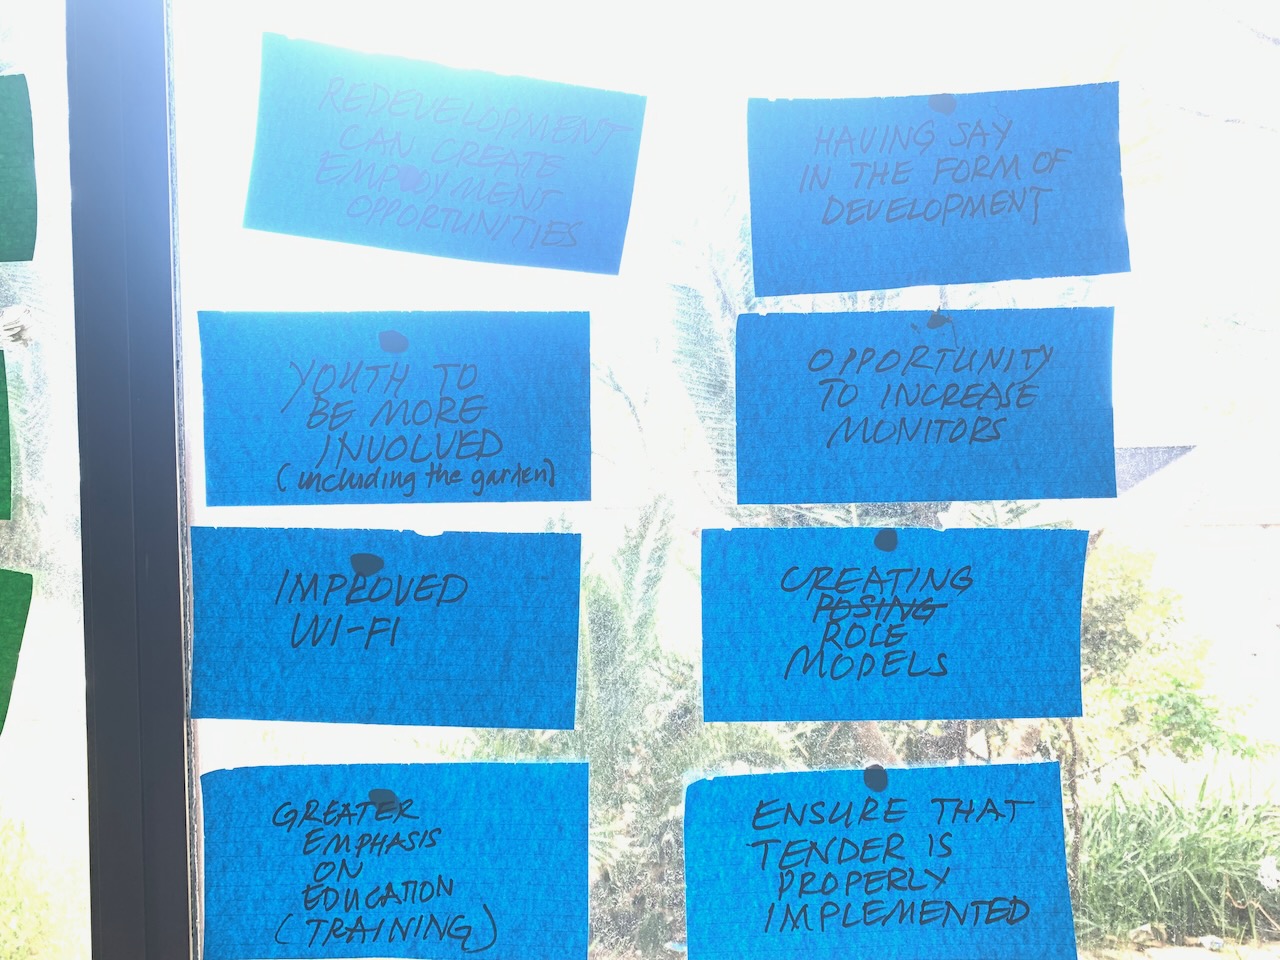 REDEVELOPMENT
CAN CREATE
EMPLOYMENT
OPPORTUNITIES
HAVING SAY
IN THE FORM OF
DEVELOPMENT
YOUTH TO
BE MORE
INVOLVED
(including the garden)
OPPORTUNITY
TO INCREASE
MONITORS
IMPROVED
WI-FI
CREATING
POSING
ROLE
MODELS
GREATER
EMPHASIS
ON
EDUCATION
(TRAINING)
ENSURE THAT
TENDER IS
PROPERLY
IMPLEMENTED